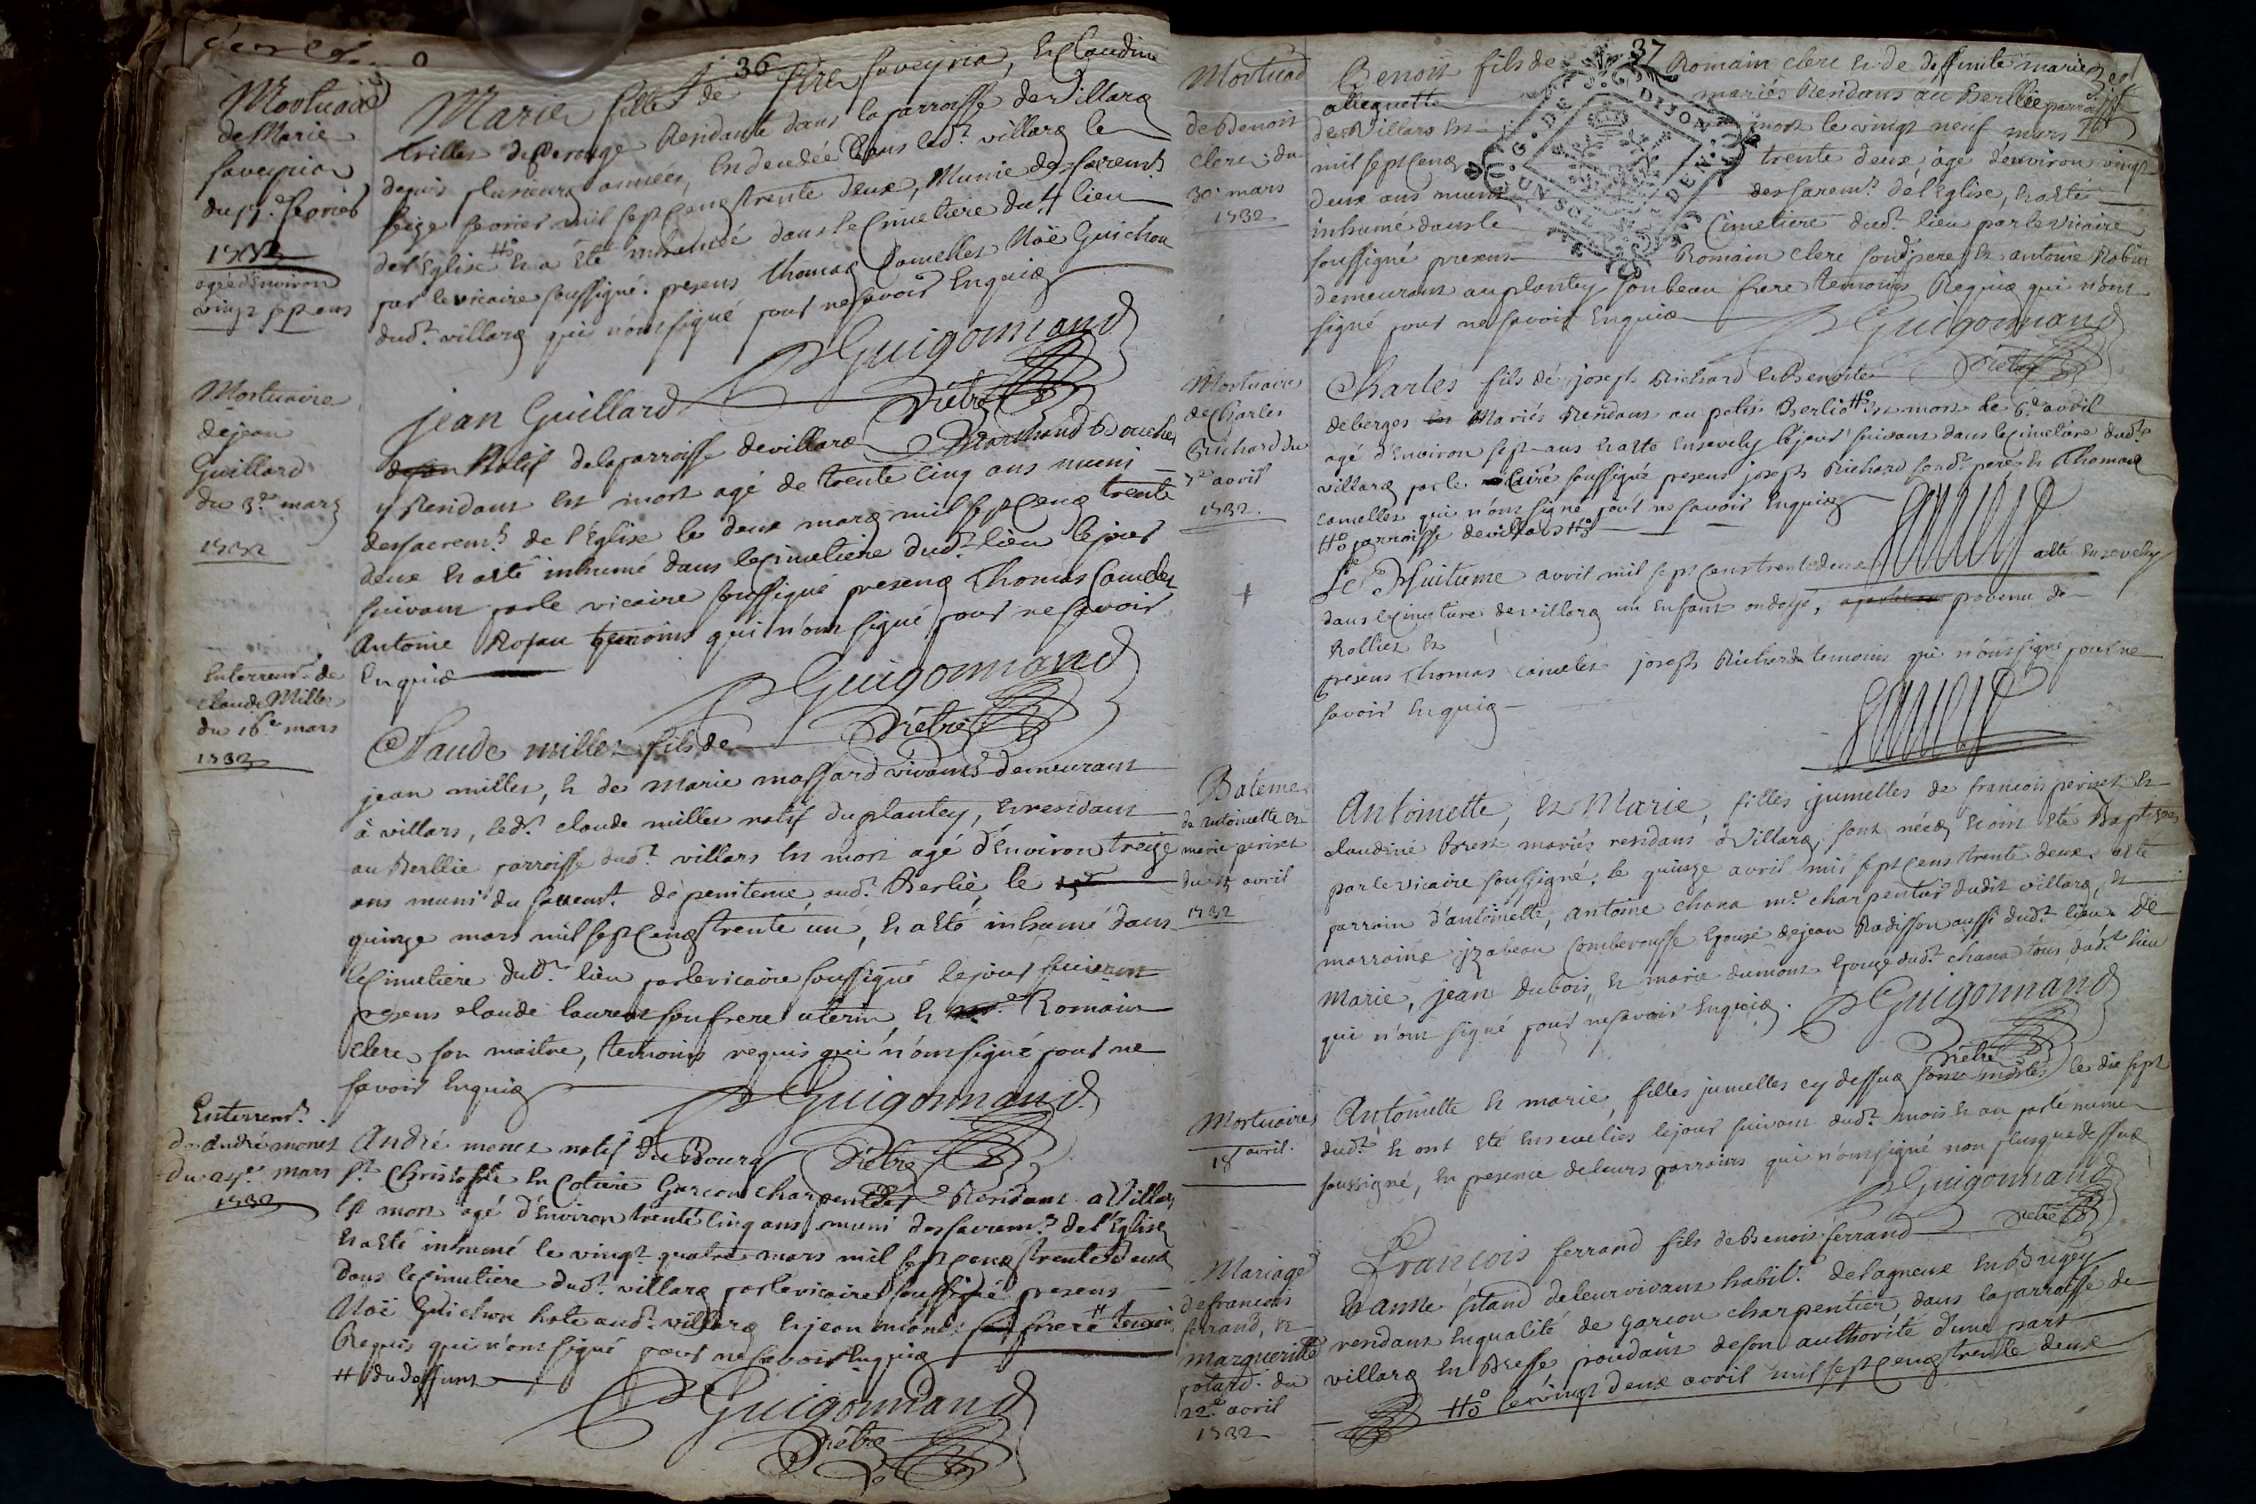 36
Mortuaire
de Marie
Saveyria
du 17e fevrier
1732
agée d'environ
vingt sept ans
Marie fille de Saveyria, et Claudine
Residante dans la parroisse de Villars
depuis plusieurs années, est decedée dans led.t villars le
seize fevrier mil sept cens trente deux, Munie des sacrem.ts
de l'Eglise et a été inhumée dans le Cimetiere dud.t lieu
par le vicaire soussigné. presens Thomas Camelles Noë Guichon
dud.t villars qui n'ont signé pour ne savoir Enquis
Guigonnand
Prêtre
Mortuaire
de jean
Guillard
du 3.e mars
1732
jean Guillard
Marchand Boucher
Natif de la parroisse de villars
y Residant est mort agé de trente cinq ans muni
des sacrem.ts de l'Eglise le deux mars mil sept cens trente
deux et a été inhumé dans le Cimetiere dud.t lieu le jour
suivant par le vicaire soussigné presens Thomas Camelles
Antoine Rosau temoins qui n'ont signé pour ne savoir
Enquis
Guigonnand
Prêtre
Enterrem.t de
Claude Millet
du 16.e mars
1732
Claude millet fils de
jean millet, et de Marie massard vivants demeurant
à villars, led.t claude millet natif du plantey, et residant
au Berllie parroisse dud.t villars est mort agé d'Environ treize
ans muni du sacrem.t de penitence aud.t Berlie, le
quinze mars mil sept cens trente un, et a été inhumé dans
le Cimetiere dud.t lieu par le vicaire soussigné le jour suivant
presens claude laurent son frere uterin, et Romain
clerc son maitre, temoins requis qui n'ont signé pour ne
savoir Enquis
Guigonnand
Prêtre
Enterrem.t
de André monet
du 24.e mars
1732
André monet natif du Bourg
S.t Christophle en Cotiere Garçon charpentier Residant a Villars
est mort agé d'Environ trente cinq ans muni des sacrem.ts de l'Eglise
et a été inhumé le vingt quatre mars mil sept cens trente deux
dans le Cimetiere dud.t villars par le vicaire soussigné presens
Noë Guichon hote aud.t villars et jean monet frere # temoins
Requis qui n'ont signé pour ne savoir Enquis
# du deffunt
Guigonnand
Prêtre
37
Mortuaire
de Benoit
clerc du
30.e mars
1732
Benoit fils de Romain clerc et de deffunte marie
alleguette mariés Residans au Berllie parroisse
de Villars est mort le vingt neuf mars
mil sept cens trente deux agé d'environ vingt
deux ans muni des sacrem.ts de l'Eglise, et a été
inhumé dans le Cimetiere dud.t lieu par le vicaire
soussigné presens Romain clerc son pere et antoine Robin
demeurant au plantey son beau frere temoins Requis qui n'ont
signé pour ne savoir Enquis
Guigonnand
Prêtre
G. DE DIJON
UN SOL
Mortuaire
de Charles
Richard du
7.e avril
1732
Charles fils de joseph Richard et Benoite
deberges Mariés Residans au petit Berlio est mort le 6.e avril
agé d'Environ sept ans et a été Ensevely le jour suivant dans le cimetiere dud.t
villars par le Curé soussigné presens joseph Richard son pere et Thomas
camelles qui n'ont signé pour ne savoir Enquis
parroisse de villars
Le Huitieme avril mil sept cens trente deux a été Ensevely
dans le Cimetiere de villars un Enfant ondoyé, provenu de
Rollier et
presens Thomas camelet joseph Richard temoins qui n'ont signé pour ne
savoir Enquis
Bateme
de antoinette et
marie perinet
du 15 avril
1732
Antoinette, et Marie, filles jumelles de francois perinet et
claudine Brest mariés residans à Villars, sont nées et ont été Baptisées
par le vicaire soussigné. le quinze avril mil sept cens trente deux. a été
parrain d'antoinette, antoine chana m.e charpentier dudit villars, et
marraine izabeau Comberousse Epouse de jean Radisson aussi dud.t lieu. De
Marie, jean Dubois, et marie dumont Epouse dud.t chana tous dud.t lieu
qui n'ont signé pour ne savoir Enquis.
Guigonnand
Prêtre
Mortuaires
18 avril.
Antoinette et marie, filles jumelles cy dessus sont mortes le dix sept
dud.t et ont été Ensevelies le jour suivant dud.t mois et an par le meme
soussigné, En presence de leurs parrains qui n'ont signé non plus que dessus
Guigonnand
Prêtre
Mariage
de francois
ferrand, et
marguerite
potard. du
22.e avril
1732
François ferrand fils de Benoit ferrand
et anne pitaud de leur vivant habit.ts de lagneux En Bugey
residant En qualité de garcon charpentier dans la parroisse de
villars En Bresse de son authorité d'une part
le vingt deux avril mil sept cens trente deux